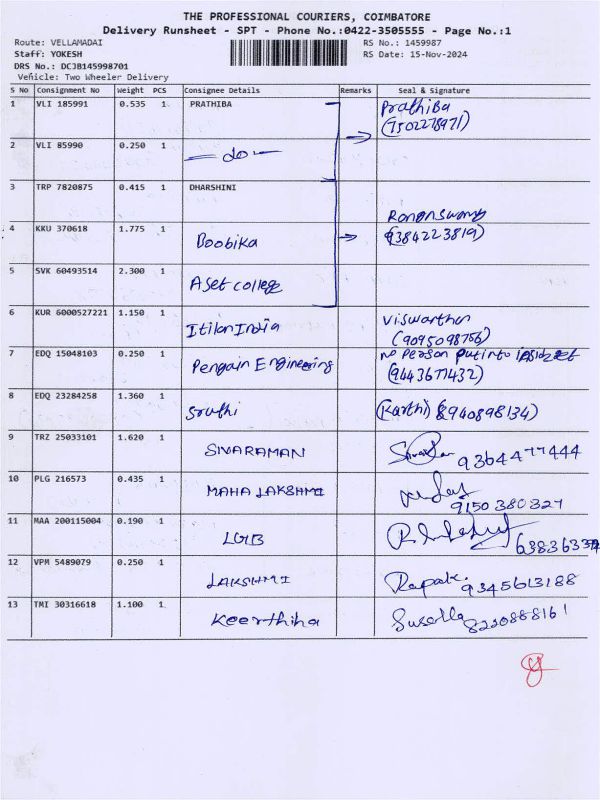 THE PROFESSIONAL COURIERS, COIMBATORE
Delivery Runsheet - SPT - Phone No.:0422-3505555 - Page No.:1
Route: VELLAMADAI RS No.: 1459987
Staff: YOKESH RS Date: 15-Nov-2024
DRS No.: DCJB145998701
Vehicle: Two Wheeler Delivery
S No Consignment No Weight PCS Consignee Details Remarks Seal & Signature
1 VLI 185991 0.535 1 PRATHIBA Prathiba
(7502278971)
2 VLI 85990 0.250 1 do
3 TRP 7820875 0.415 1 DHARSHINI
4 KKU 370618 1.775 1 Boobika (9384223819)
5 SVK 60493514 2.300 1 Aset college
6 KUR 6000527221 1.150 1 Viswarthan
(9095098756)
7 EDQ 15048103 0.250 1 Pengain Engineering No Person put into
(9443677432)
8 EDQ 23284258 1.360 1 Sruthi (Karthi) 8940898134)
9 TRZ 25033101 1.620 1 SIVARAMAN 9364477444
10 PLG 216573 0.435 1 MAHA LAKSHMI
9150380327
11 MAA 200115004 0.190 1
12 VPM 5489079 0.250 1 LAKSHMI 9345613188
13 TMI 30316618 1.100 1 Keerthiha 8220888161